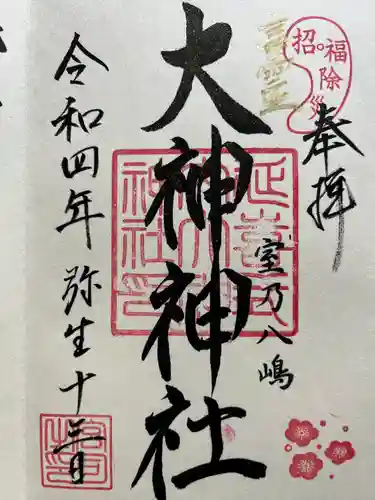 招福除災
奉拝
室乃八嶋
大神神社
令和四年弥生十三日